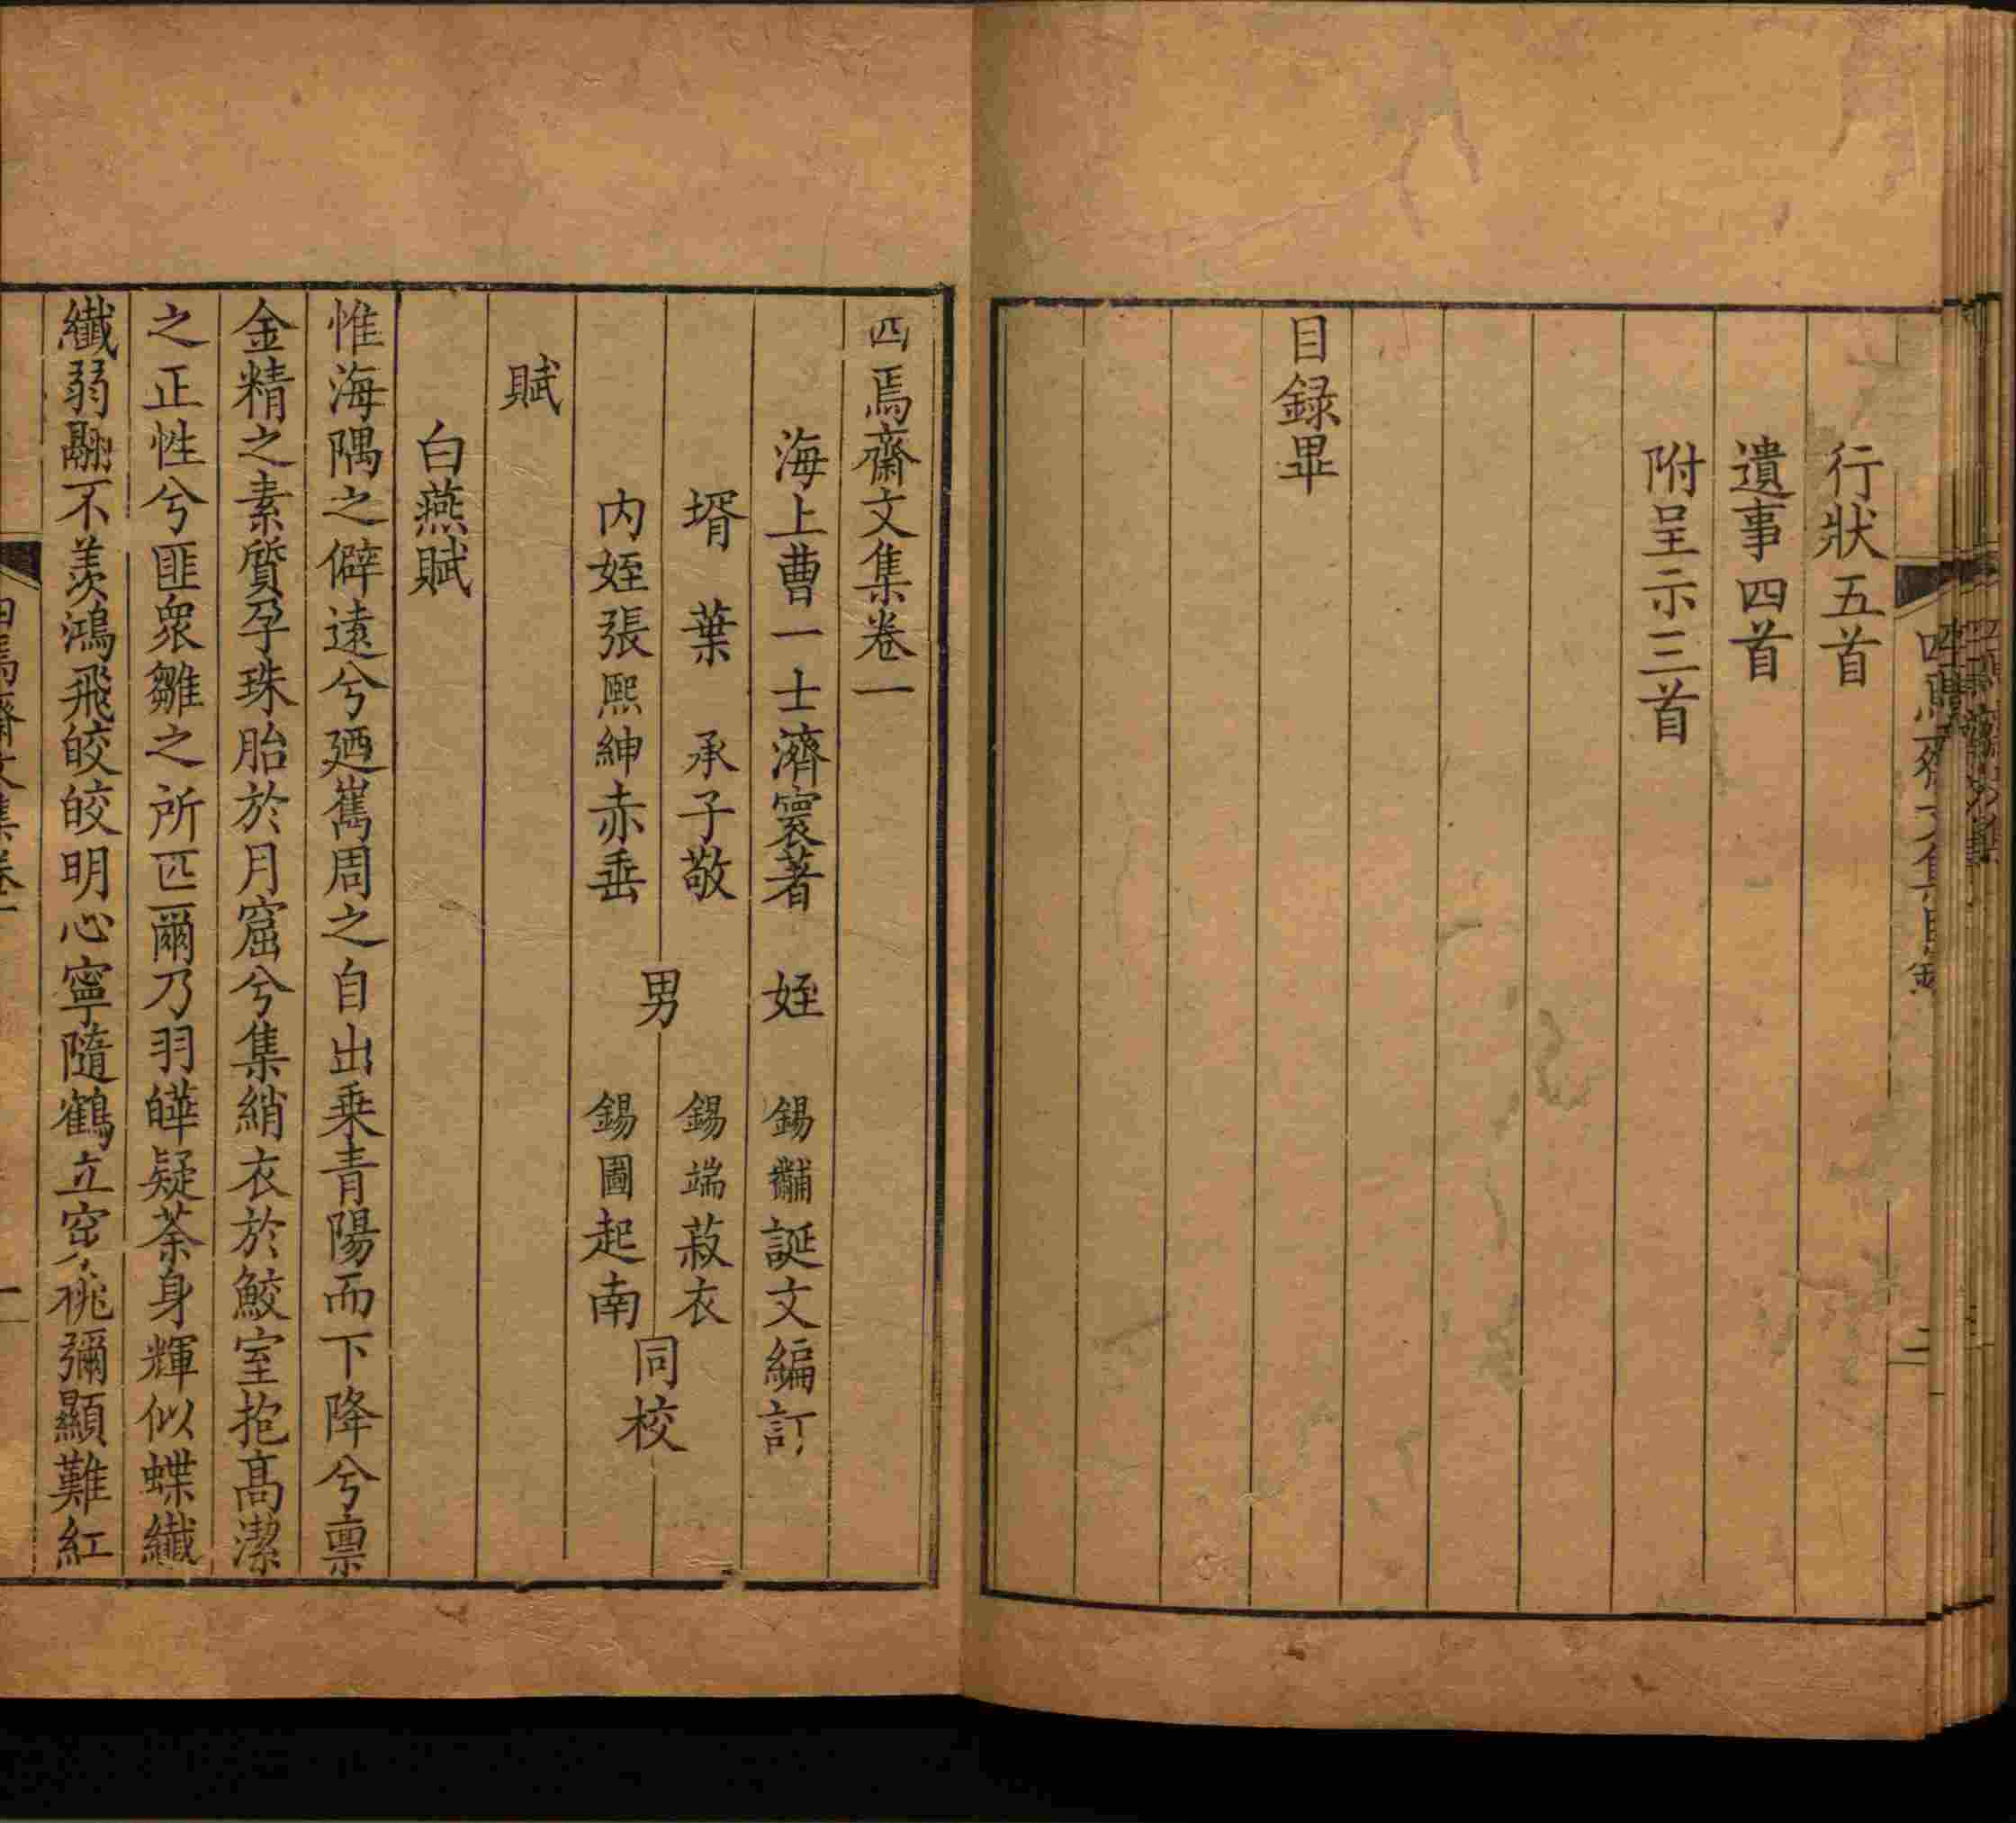 行狀五首
遺事四首
附呈示三首
目録畢
四焉齋文集目錄
二
四焉齋文集卷一
海上曹一士濟寰著 姪 錫黼誕文編訂
壻 葉 承子敬 錫端菽衣
男 同校
内姪張熙紳赤垂 錫圖起南
賦
白燕賦
惟海隅之僻遠兮廼巂周之自出乗青陽而下降兮禀
金精之素質孕珠胎於月窟兮集綃衣於鮫室抱高潔
之正性兮匪衆雛之所匹爾乃羽皣疑荼身輝似蝶纖
纖弱翮不羨鴻飛皎皎明心寧隨鶴立窊祧彌顯難紅
四焉齋文集卷一
一